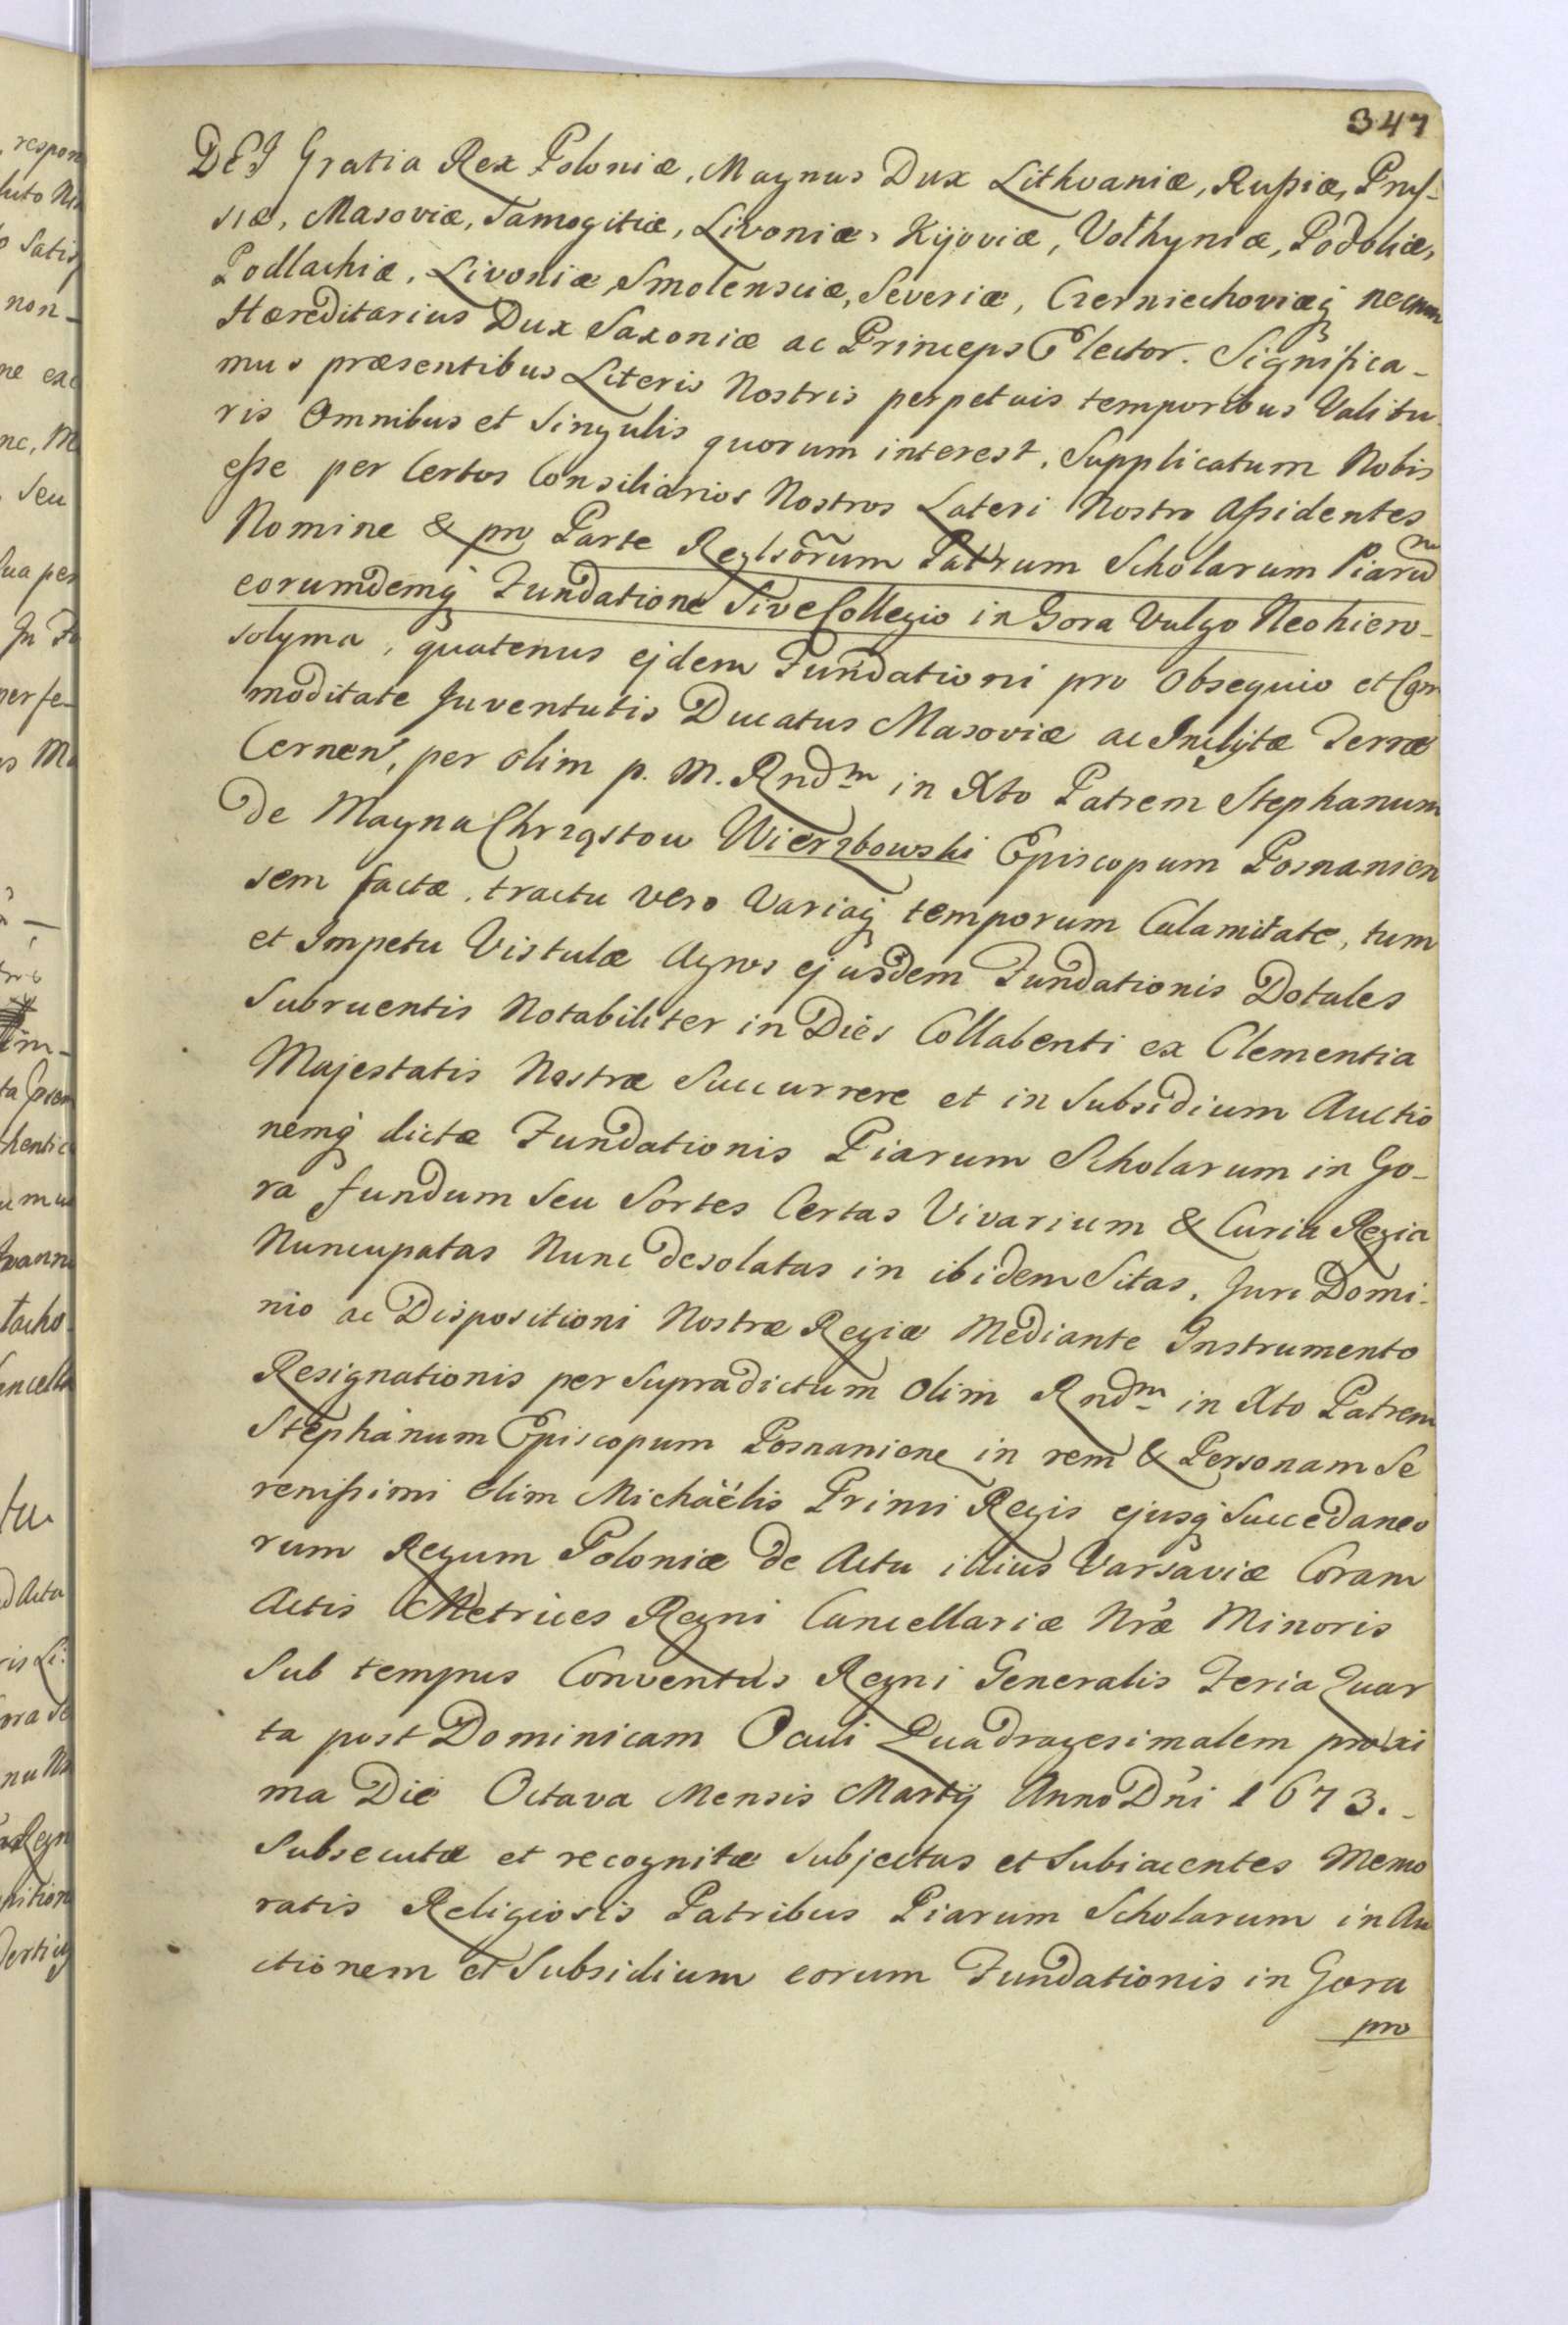 347
DEI Gratia Rex Poloniæ, Magnus Dux Lithvaniæ, Rußiæ, Prus-
siæ, Masoviæ, Samogitiæ, Livoniæ, Kijoviæ, Volhyniæ, Podoliæ,
Podlachiæ, Livoniæ, Smolensciæ, Severiæ, Czerniechoviæq́ necnon
Hæreditarius Dux Saxoniæ ac Princeps Elector. Significa-
mus præsentibus Literis Nostris perpetuis temporibus Valitu-
ris Omnibus et Singulis quorum interest, Supplicatum Nobis
eße per Certos Consiliarios Nostros Lateri Nostro Aßidentes
Nomine & pro Parte Reglsõrum Patrum Scholarum Piarũ
eorumdemq́ Fundatione Sive Collegio in Gora Vulgo Neohiero-
solyma, quatenus ejdem Fundationi pro Obsequio et Com
moditate Juventutis Ducatus Masoviæ ac Inclytæ Terræ
Cernen', per olim p. M. Rndm in Xto Patrem Stephanum
de Magna Chrząstow Wierzbowski Episcopum Posnanien
sem factæ, tractu vero Variaq́ temporum Calamitate, tum
et Impetu Vistulæ Agros ejusdem Fundationis Dotales
Subruentis Notabiliter in Dies Collabenti ex Clementia
Majestatis Nostræ Succurrere et in Subsidium Auctio
nemq́ dictæ Fundationis Piarum Scholarum in Go-
ra fundum Seu Sortes Certas Vivarium & Curia Regia
Nuncupatas Nunc desolatas in ibidem Sitas, Juri Domi-
nio ac Dispositioni Nostræ Regiæ Mediante Instrumento
Resignationis per Supradictum Olim Rndm in Xto Patrem
Stephanum Episcopum Posnaniene in rem & Personam Se
renißimi olim Michaëlis Primi Regis ejusq́ Succedaneo
rum Regum Poloniæ de Actu illius Varsaviæ Coram
Actis Metrices Regni Cancellariæ Nræ Minoris
Sub tempus Conventus Regni Generalis Feria Quar
ta post Dominicam Oculi Quadragesimalem proxi
ma Die Octava Mensis Martij Anno Dni 1673.-
Subsecutæ et recognitæ Subjectas et Subiacentes Memo
ratis Religiosis Patribus Piarum Scholarum in Au
ctionem et Subsidium eorum Fundationis in Gora
pro